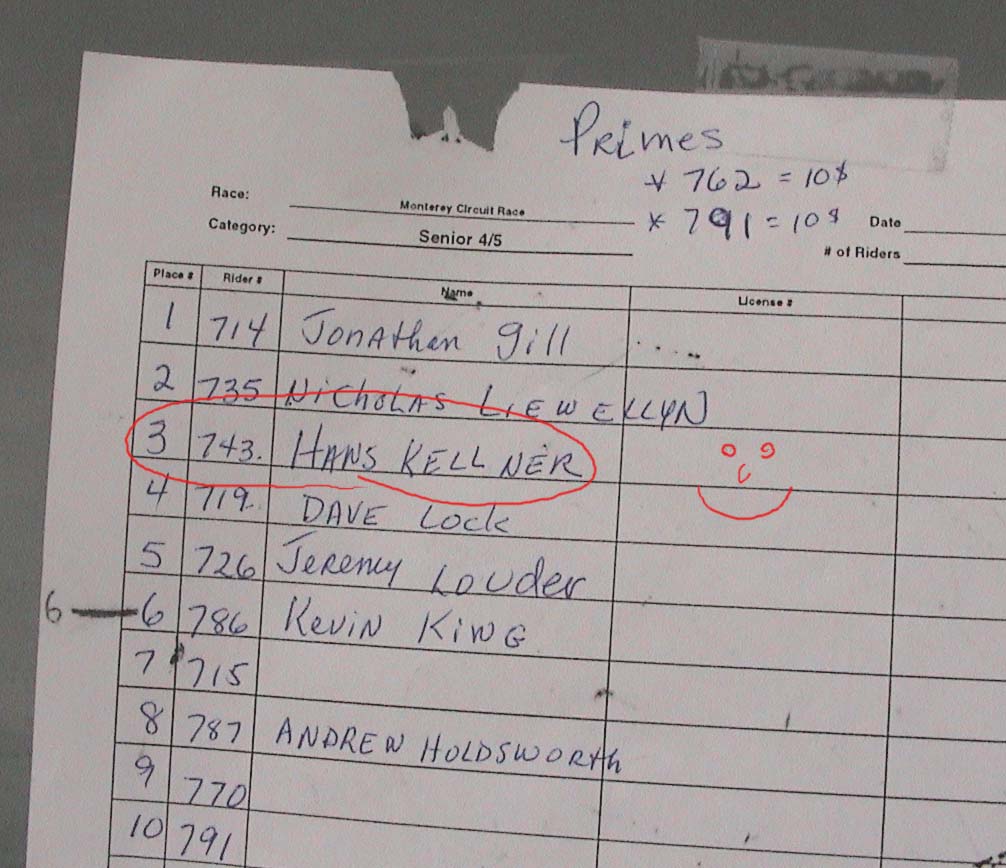 Primes
* 762 = 10$
* 791 = 10$
Race: Monterey Circuit Race
Date
Category: Senior 4/5
# of Riders
Place # Rider # Name License #
1 714 Jonathan Gill
2 735 Nicholas Llewellyn
3 743. HANS KELLNER
4 719 DAVE Lock
5 726 Jeremy Louder
6 6 786 Kevin King
7 715
8 787 ANDREW HOLDSWORTh
9 770
10 791